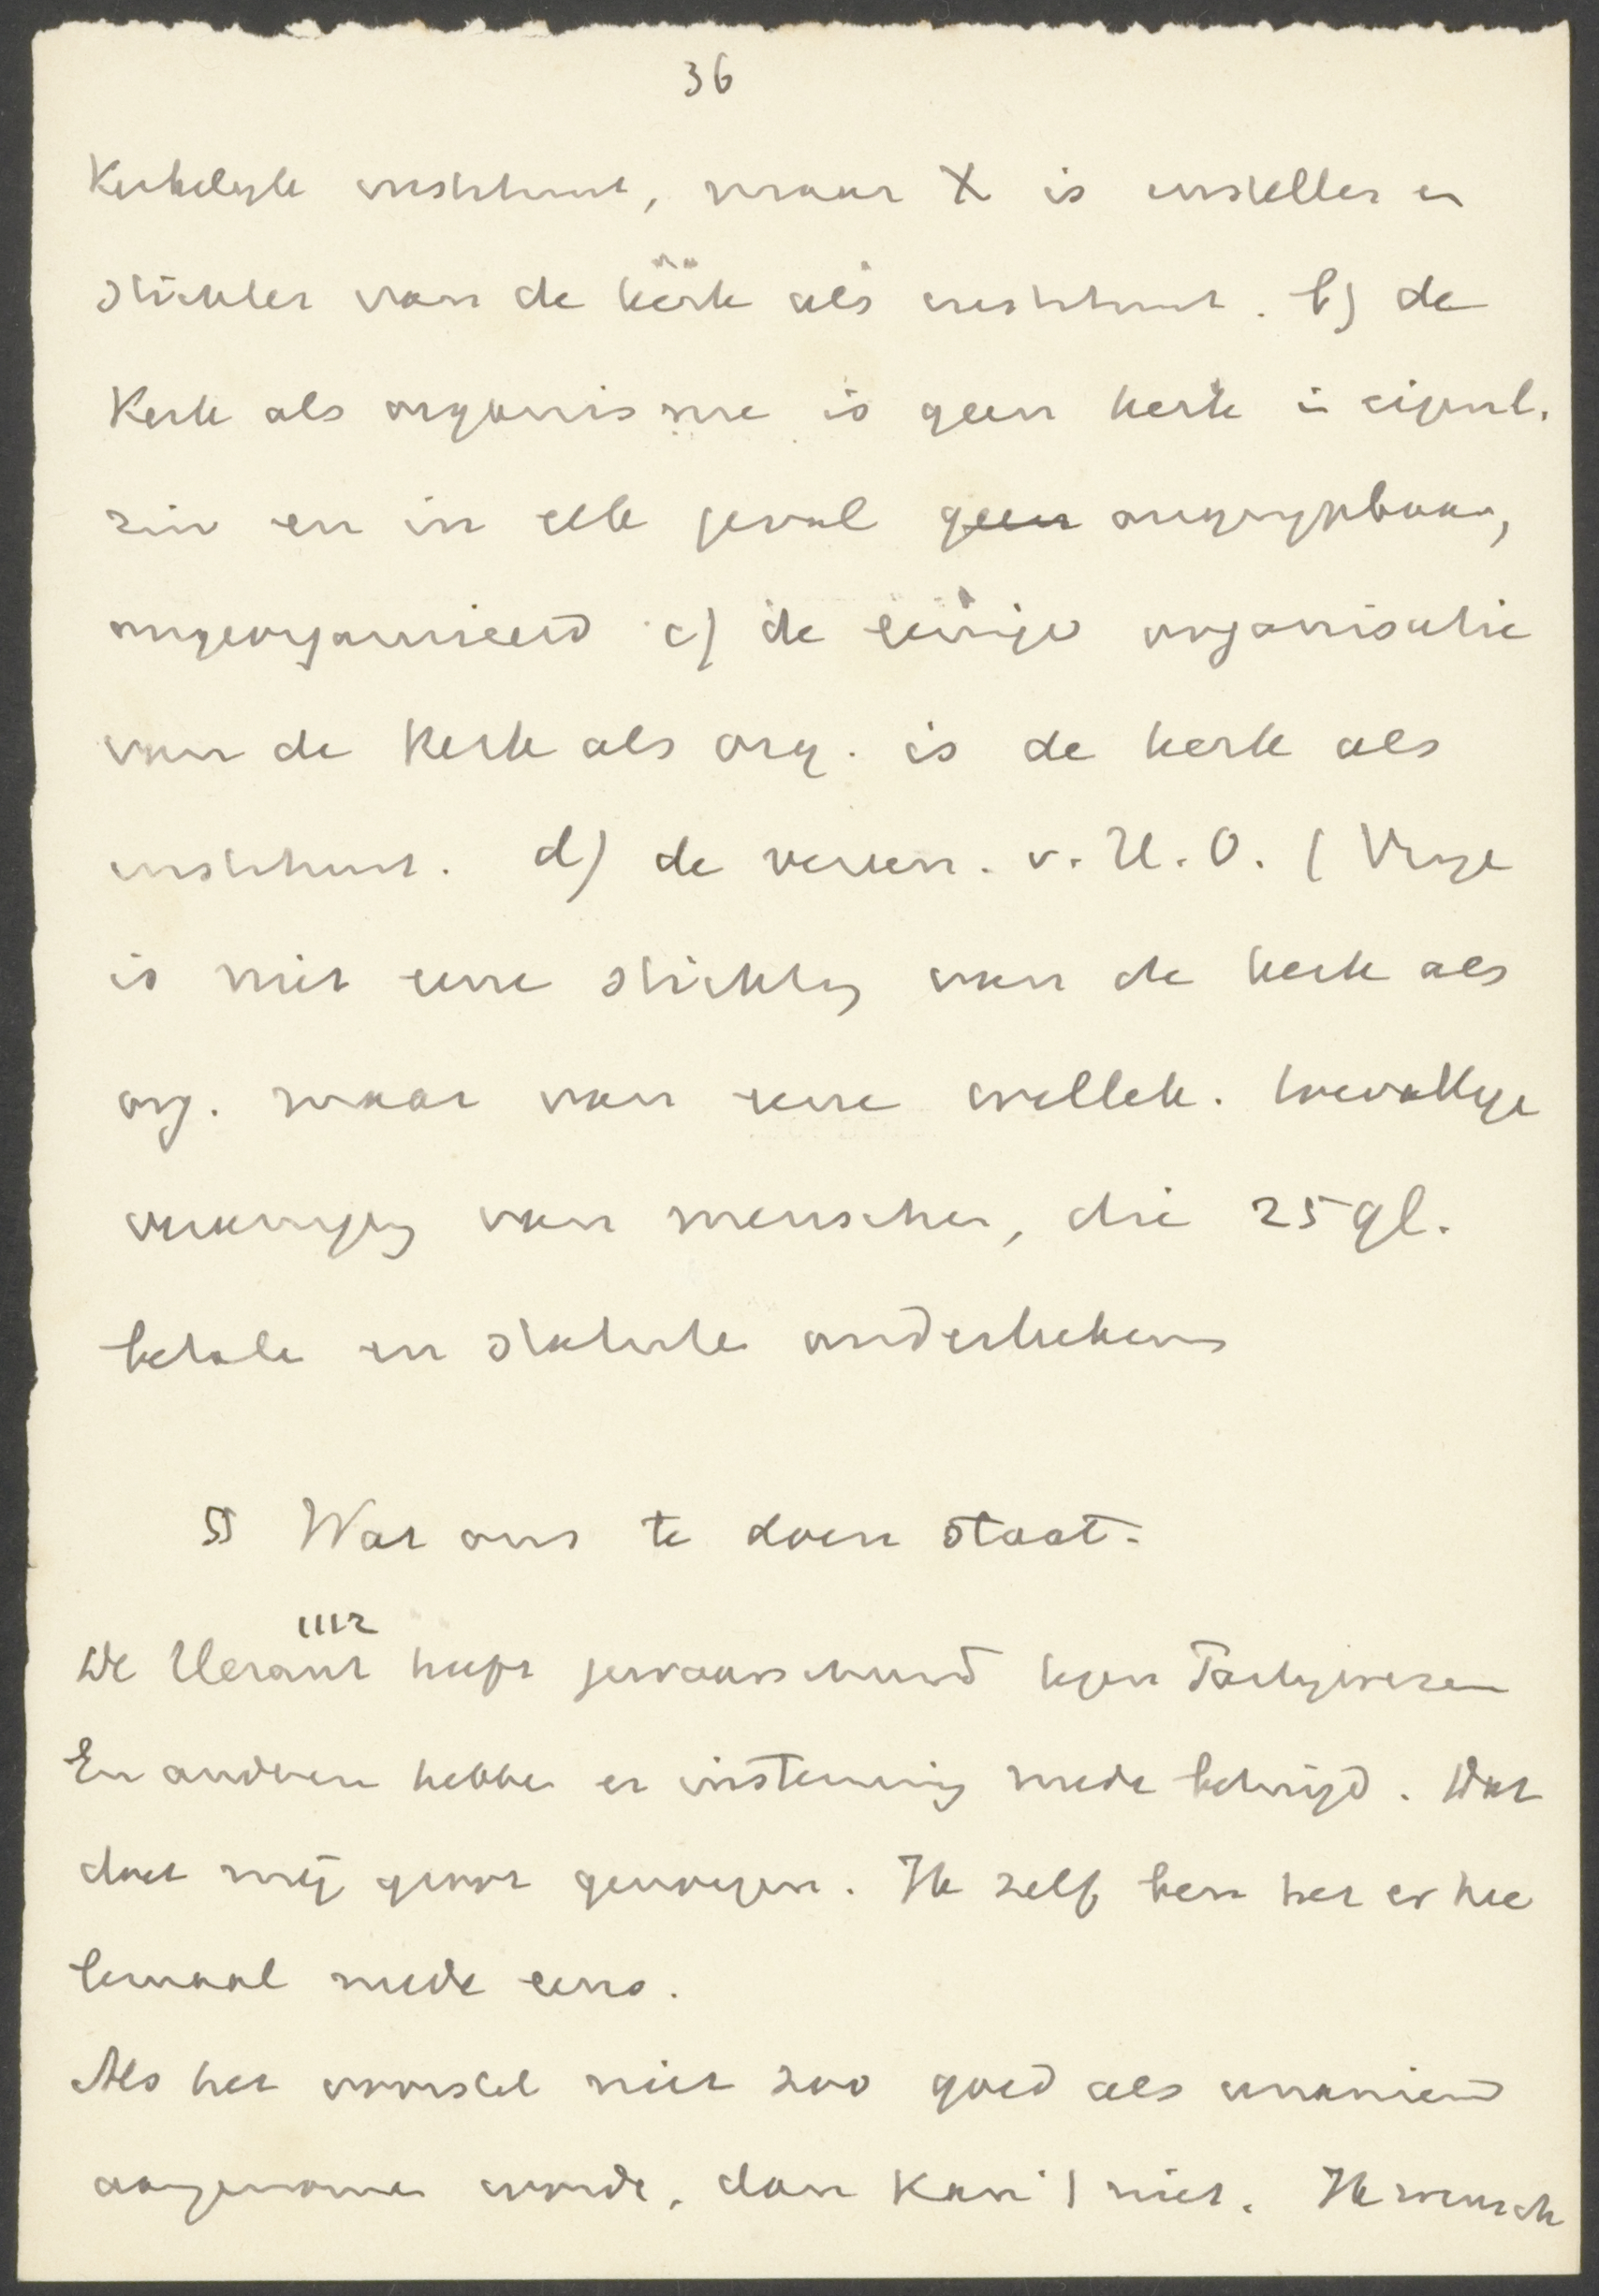 36
Kerkelyk instituut, maar X is insteller en
stichter van de kerk als instituut. b) de
Kerk als organisme is geen kerk in eigenl.
zin en in elk geval geen ongrypbaar,
ongeorganiseerd c) de eenige organisatie
van de Kerk als org. is de kerk als
instituut. d) de vereen. v. H. O. (Vrye
is niet eene stichting van de kerk als
org. maar van eene willek. toevallige
vereeniging van menschen, die 25 gl.
betale en statuten onderteekenen
§ Wat ons te doen staat.
1112
De Heraut heeft gewaarschuwd tegen Partywezen
En anderen hebben er instemming mede betuigd. Dat
doet mij groot genoegen. Ik zelf ben het er hee
lemaal mede eens.
Als het voorstel niet zoo goed als unaniem
aangenomen wordt, dan kan 't niet. Ik wensch